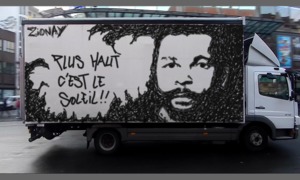 ZIONAY
PLUS HAUT
C'EST LE
SOLEIL!!